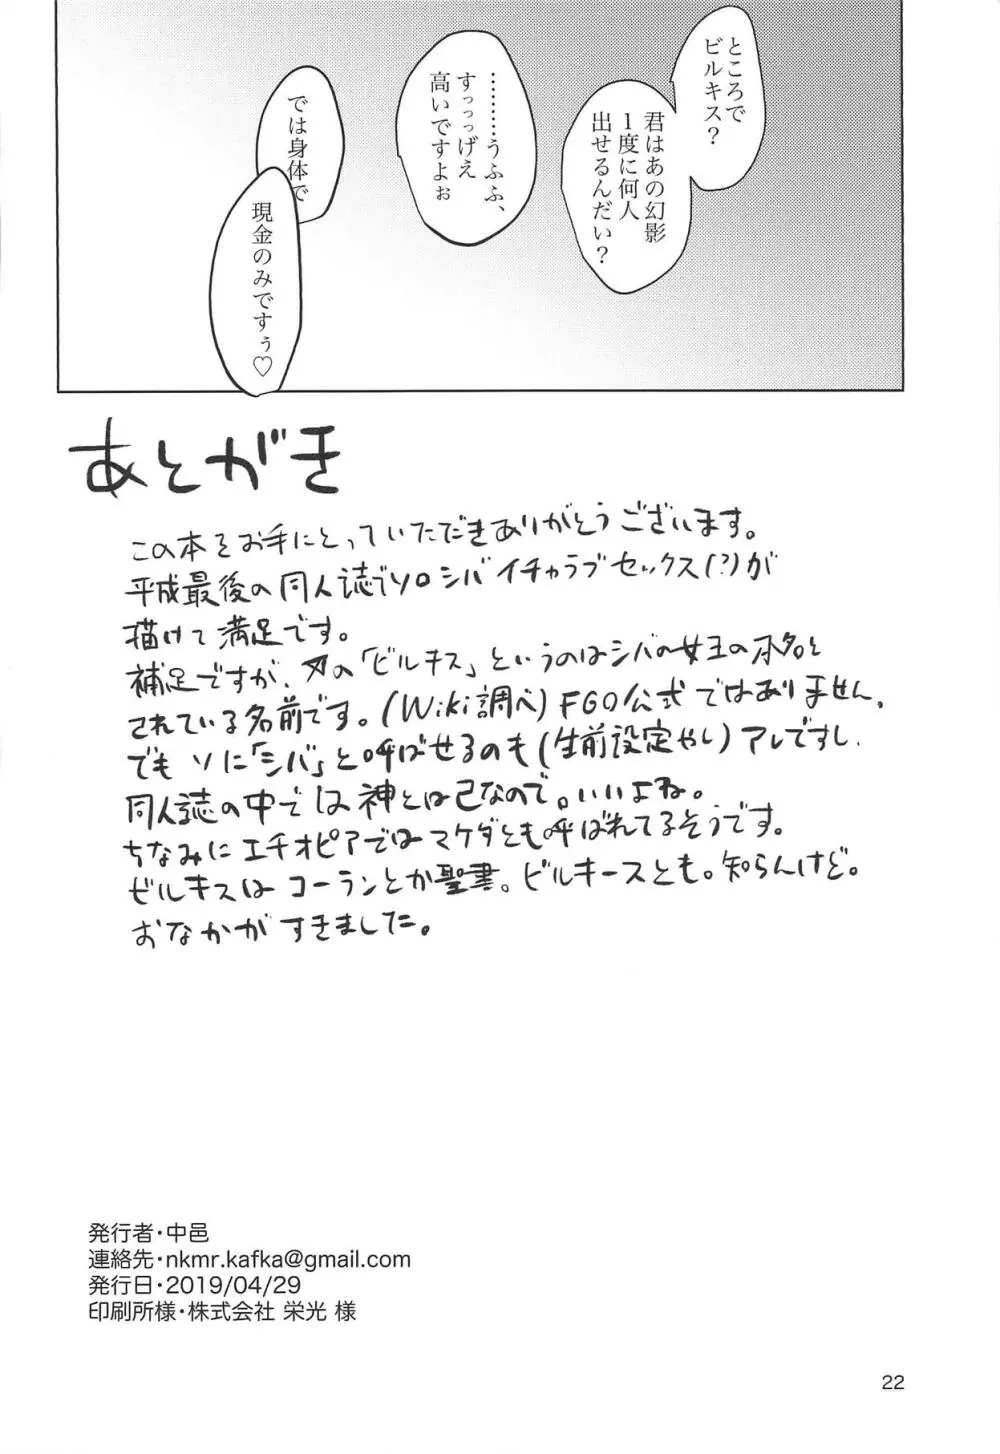 ところで
ビルキス？
君はあの幻影
１度に何人
出せるんだい？
………うふふ、
すっっっげえ
高いですよぉ
では身体で
現金のみですぅ♡
あとがき
この本をお手にとっていただきありがとうございます。
平成最後の同人誌でソロシバイチャラブセックス(?)が
描けて満足です。
補足ですが、〆の「ビルキス」というのはシバの女王の本名と
されている名前です。(Wiki調べ) FGO公式ではありません。
でもソに「シバ」と呼ばせるのも(生前設定やし)アレですし、
同人誌の中では神とは己なので。いいよね。
ちなみにエチオピアではマケダとも呼ばれてるそうです。
ビルキスはコーランとか聖書。ビルキースとも。知らんけど。
おなかがすきました。
発行者・中邑
連絡先・nkmr.kafka@gmail.com
発行日・2019/04/29
印刷所様・株式会社 栄光 様
22